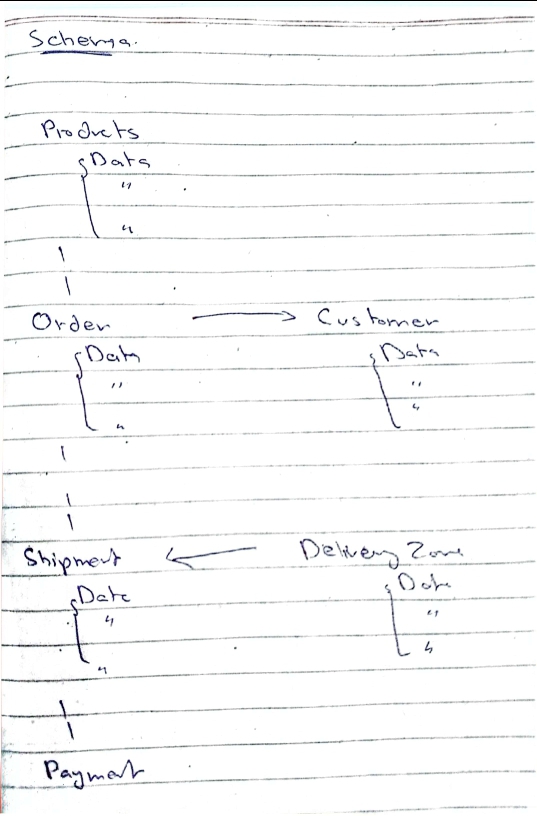 Schema.
Products
Data
"
"
Order → Customer
Data Data
" "
" "
Shipment ← Delivery Zone
Date Date
" "
" "
Payment